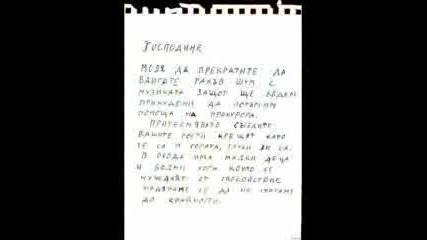 Господине
Моля да прекратите да
вдигате такъв шум с
музиката защот ще бъдем
принудени да потърсим
помоща на прокурора.
Притеснявате съседите
Вашите гости крещят като
че са в гората, глухи ли са.
В входа има малки деца
и болни хора които се
нуждаят от спокойствие
надяваме се да не стигаме
до крайности.